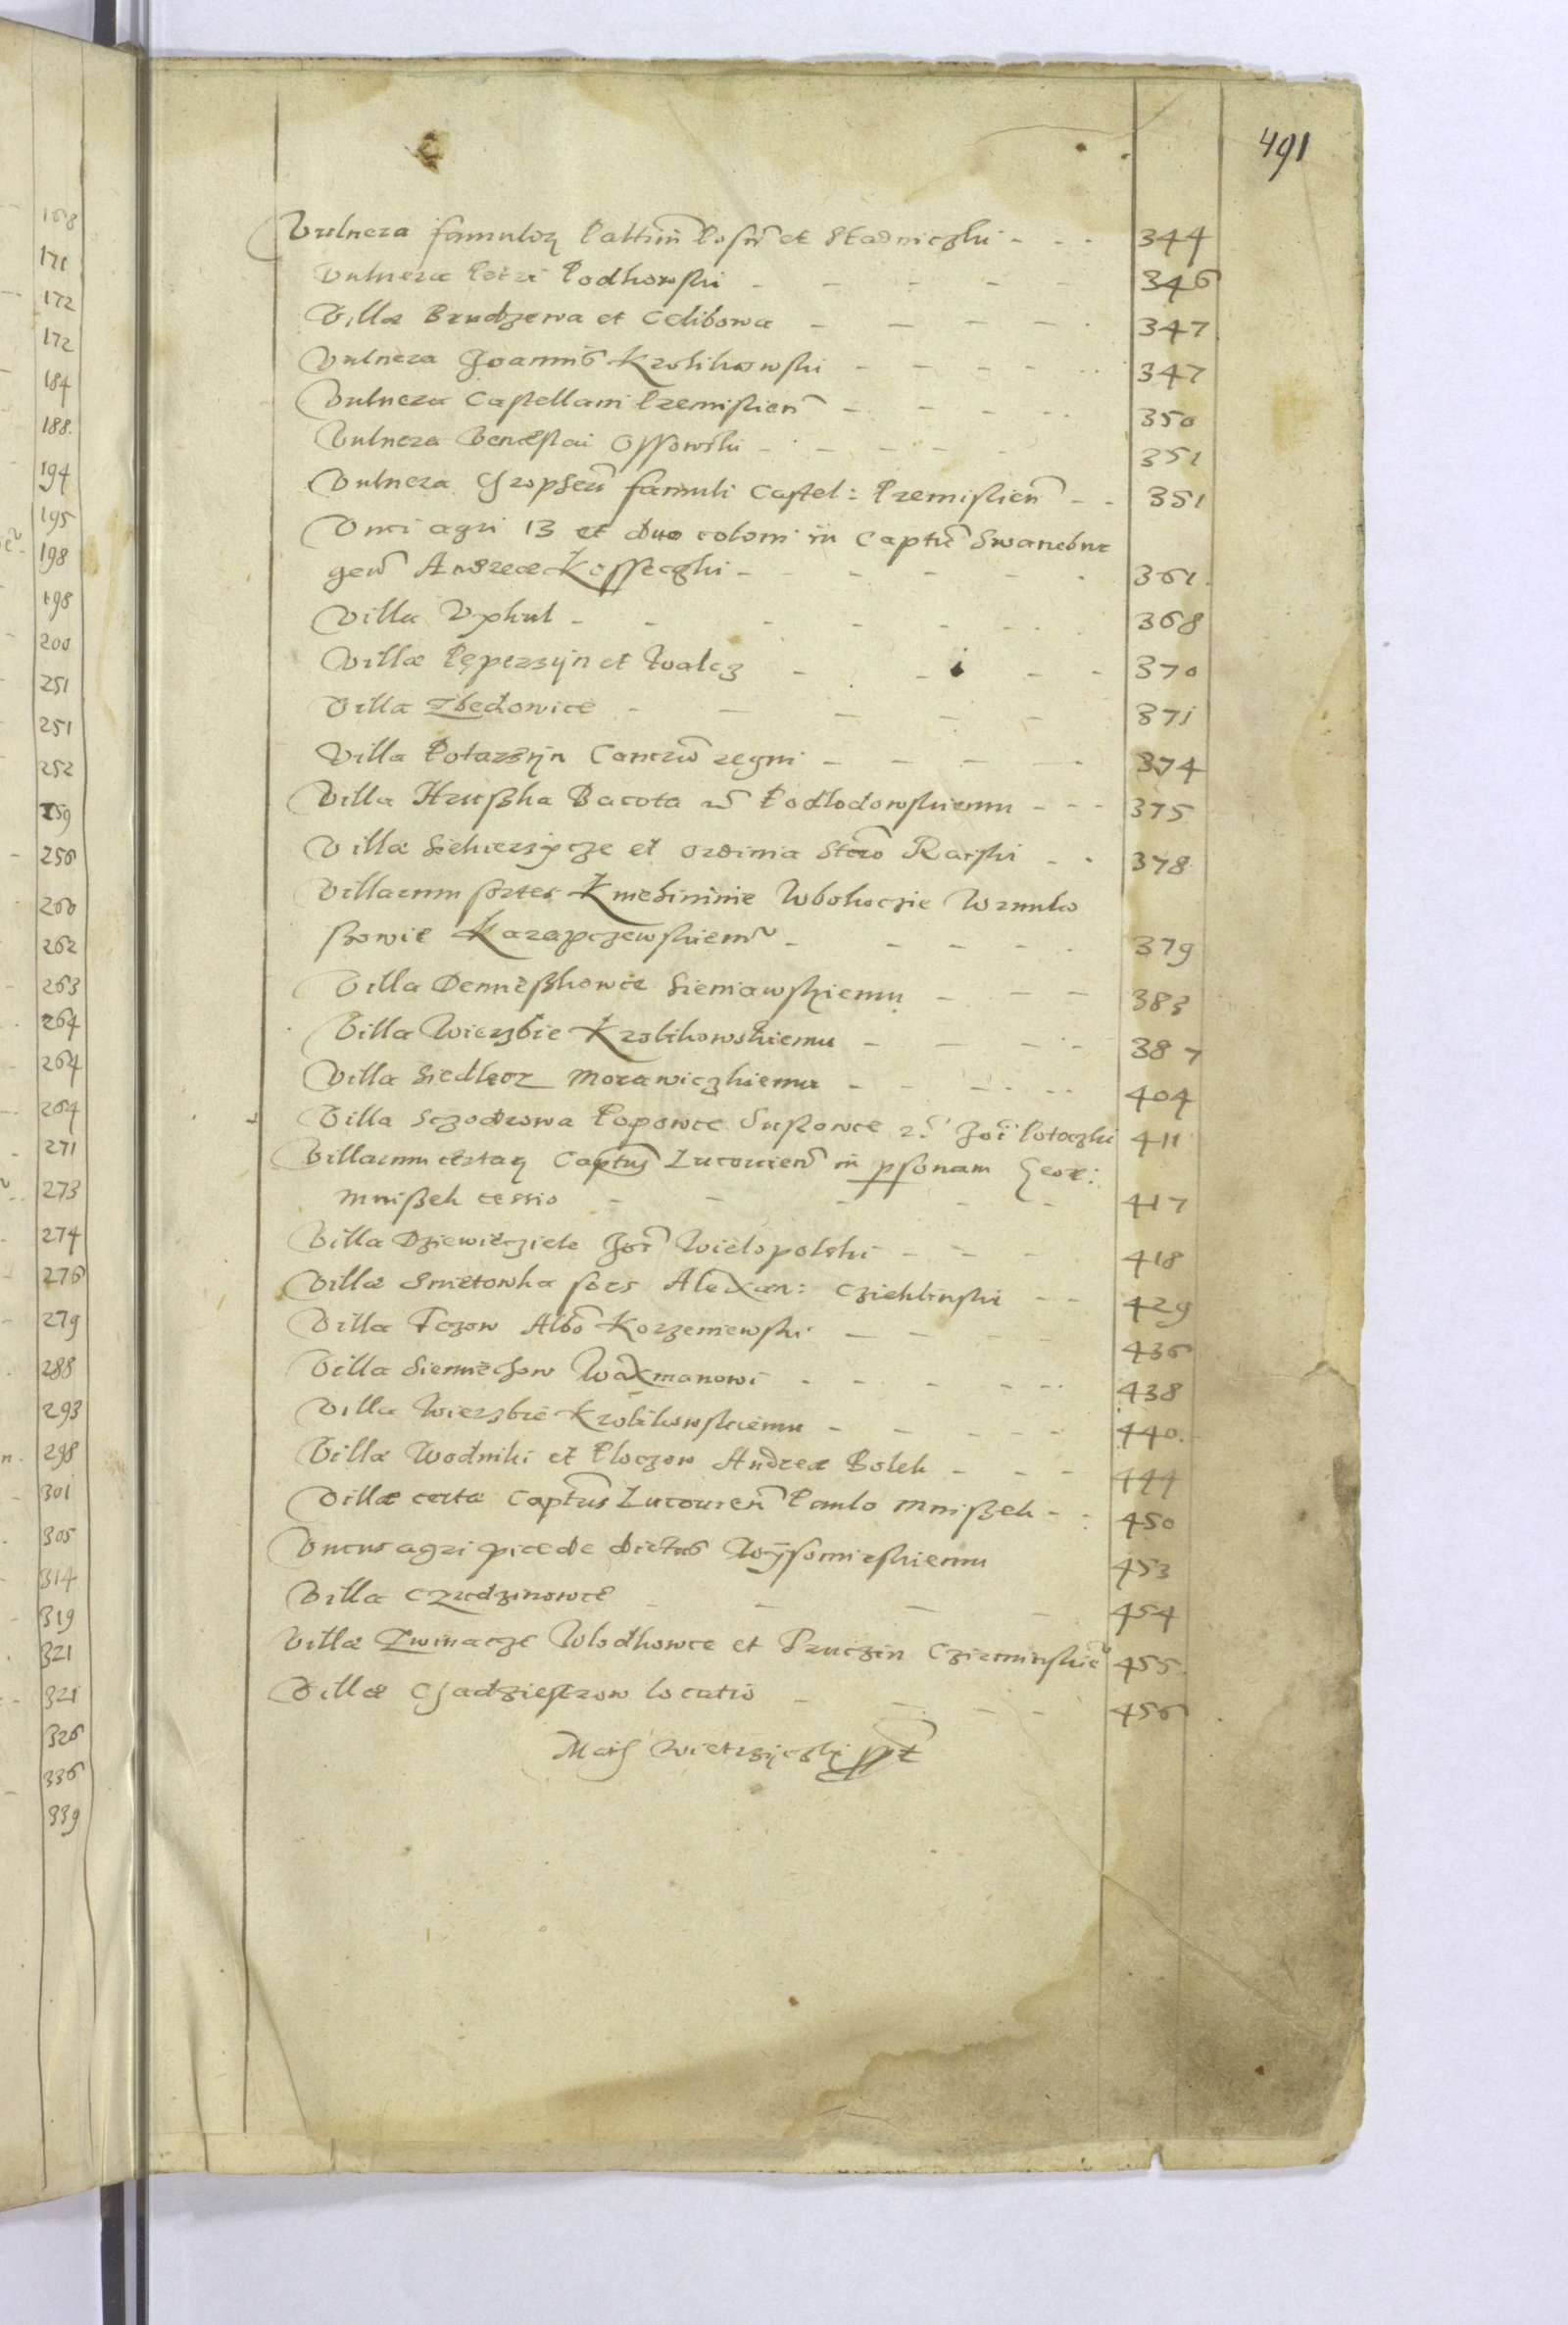 491
Vulnera famulor Pallatini Posn et Stadniczki - - - 344
Vulnera Petri Podhorski - - - - - 346
Villæ Brudzewa et Celibowa - - - - 347
Vulnera Joannis Krolikowski - - - - 347
Vulnera Castellani Premislien - - - - 350
Vulnera Venceslai Ossowski - - - - - 351
Vulnera Gropseri famuli Castel: Premislien - - 351
Unci agri 13 et duo coloni in Captu Swanebur
gen Andreæ Kosseczki - - - - - 361.
Villa Uxkul - - - - - - 368
Villæ Pepersyn et Walcz - - - - 370
Villa Zbedowice - - - - - 371
Villa Potarzyn Cancru regni - - - - 374
Villa Hruszka Bacota Podlodowskiemu - - - 375
Villæ Siekierzycze et Ordinia Rarski - - 378
Villarum sortes Kmehininie Wbokoczie Wrnuko
szowie Karapczewskiem - - - - 379
Villa Demieszkowce Sieniawskiemu - - - 383
Villa Wierzbie Krolikowskiemu - - - - 387
Villa Siedleor Morawiczkiemu - - - - 404
Villa Sczodrowa Popowce Suslowce Joi Potoczki 411
Villarum certar Captus Lucovien in psonam Geor:
Mniszek cessio - - - - - 417
Villa Dziewiecziele Jois Wielopolski - - - 418
Villæ Smetowka sors Alexan: Cziehlinski - - 429
Villa Tczow Alb Korzeniewski - - - - 436
Villa Siemiechow Waxmanowi - - - - - 438
Villa Wierzbie Krolikowskiemu - - - - - 440.
Villæ Wodniki et Ploczow Andreæ Bolek - - - 444
Villæ certæ Captus Lucovien Paulo Mniszek - - 450
Uncus agri picede dictus Wysomirskiemu 453
Villa Czudzinowce - - - - 454
Villæ Zwinacze Wlodkowce et Pruczin Czieminskie 455.
Villæ Chadziestrow locatio - - - - 456
168
171
172
172
184
188.
194
195
198
198
200
251
251
252
259
256
260
262
263
264
264
264
271
273
274
276
279
288
293
298
301
305
314
319
321
321
326
336
339